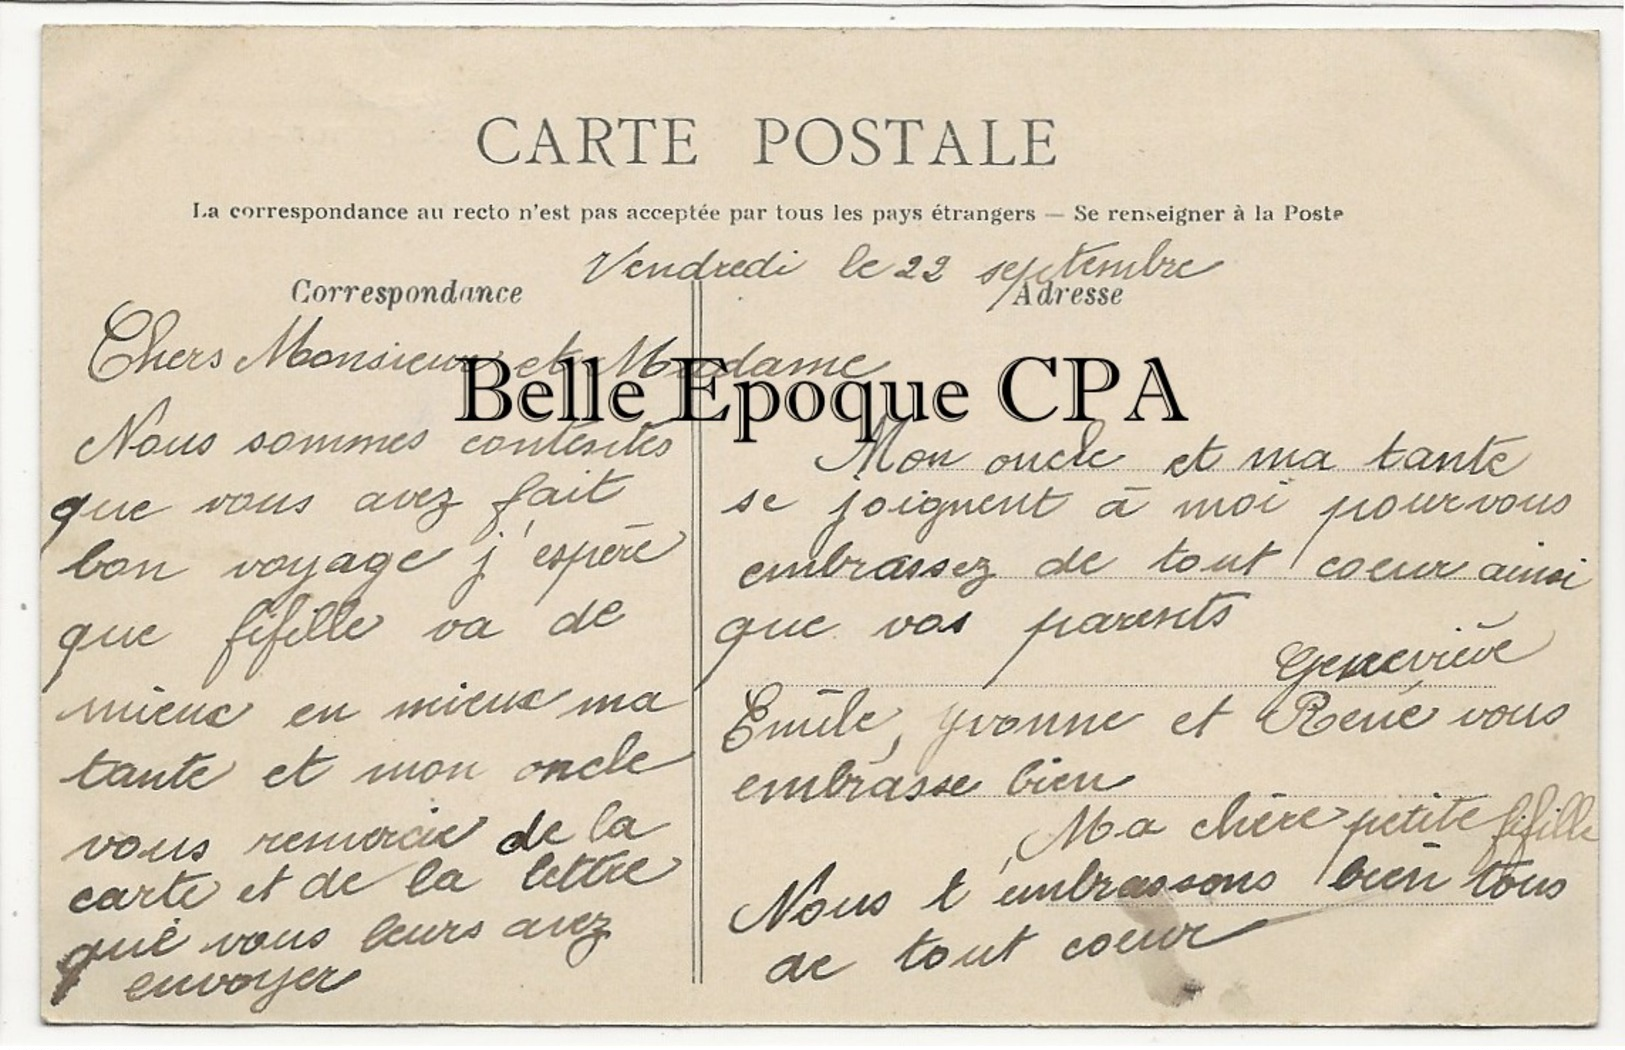 CARTE POSTALE
La correspondance au recto n'est pas acceptée par tous les pays étrangers — Se renseigner à la Poste
Vendredi le 22 septembre
Correspondance
Adresse
Chers Monsieur et Madame
Belle Epoque CPA
Nous sommes contents
que vous avez fait
bon voyage j'espère
que fifille va de
mieux en mieux ma
tante et mon oncle
vous remercie de la
carte et de la lettre
que vous leurs avez
envoyer
Mon oncle et ma tante
se joignent à moi pour vous
embrassez de tout coeur ainsi
que vos parents
Geneviève
Emile, Yvonne et René vous
embrasse bien
Ma chère petite fifille
Nous t'embrassons bien tous
de tout coeur